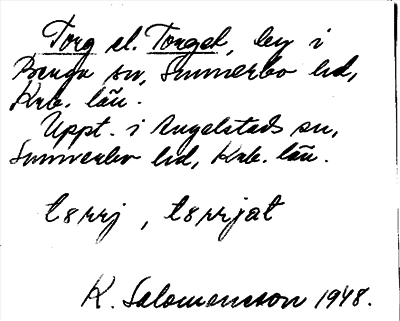 Torg el. Torget, by i
Berga sn, Sunnerbo hd,
Krb. län.
Uppt. i Angelstads sn,
Sunnerbo hd, Krb. län.
K. Salomonsson 1948.